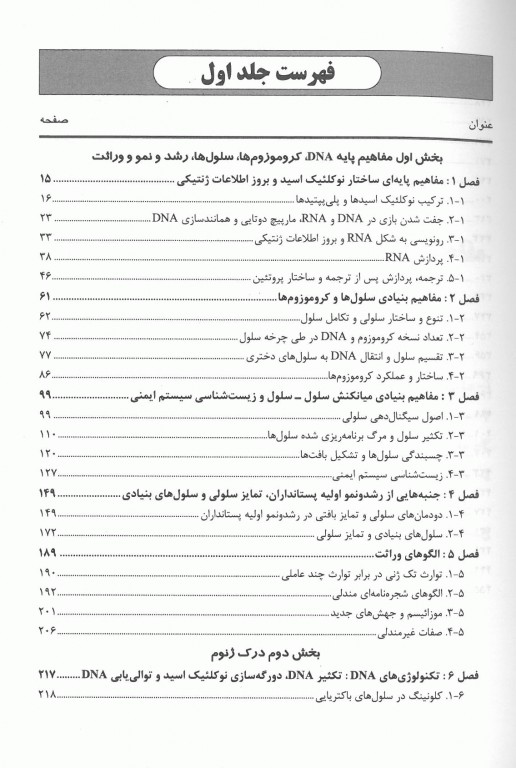 فهرست جلد اول
عنوان صفحه
بخش اول مفاهیم پایه DNA، کروموزوم‌ها، سلول‌ها، رشد و نمو و وراثت
فصل ۱ : مفاهیم پایه‌ای ساختار نوکلئیک اسید و بروز اطلاعات ژنتیکی ۱۵
۱-۱. ترکیب نوکلئیک اسیدها و پلی‌پپتیدها ۱۶
۱-۲. جفت شدن بازی در DNA و RNA، مارپیچ دوتایی و همانندسازی DNA ۲۳
۱-۳. رونویسی به شکل RNA و بروز اطلاعات ژنتیکی ۳۳
۱-۴. پردازش RNA ۳۸
۱-۵. ترجمه، پردازش پس از ترجمه و ساختار پروتئین ۴۶
فصل ۲ : مفاهیم بنیادی سلول‌ها و کروموزوم‌ها ۶۱
۲-۱. تنوع و ساختار سلولی و تکامل سلول ۶۲
۲-۲. تعداد نسخه کروموزوم و DNA در طی چرخه سلول ۷۴
۲-۳. تقسیم سلول و انتقال DNA به سلول‌های دختری ۷۷
۲-۴. ساختار و عملکرد کروموزوم‌ها ۸۶
فصل ۳ : مفاهیم بنیادی میانکنش سلول ـ سلول و زیست‌شناسی سیستم ایمنی ۹۹
۳-۱. اصول سیگنال‌دهی سلولی ۹۹
۳-۲. تکثیر سلول و مرگ برنامه‌ریزی شده سلول‌ها ۱۱۰
۳-۳. چسبندگی سلول‌ها و تشکیل بافت‌ها ۱۲۰
۳-۴. زیست‌شناسی سیستم ایمنی ۱۲۷
فصل ۴ : جنبه‌هایی از رشدونمو اولیه پستانداران، تمایز سلولی و سلول‌های بنیادی ۱۴۹
۴-۱. دودمان‌های سلولی و تمایز بافتی در رشدونمو اولیه پستانداران ۱۴۹
۴-۲. سلول‌های بنیادی و تمایز سلولی ۱۷۲
فصل ۵ : الگوهای وراثت ۱۸۹
۵-۱. توارث تک ژنی در برابر توارث چند عاملی ۱۹۰
۵-۲. الگوهای شجره‌نامه‌ای مندلی ۱۹۲
۵-۳. موزائیسم و جهش‌های جدید ۲۰۱
۵-۴. صفات غیرمندلی ۲۰۶
بخش دوم درک ژنوم
فصل ۶ : تکنولوژی‌های DNA : تکثیر DNA، دورگه‌سازی نوکلئیک اسید و توالی‌یابی DNA ۲۱۷
۶-۱. کلونینگ در سلول‌های باکتریایی ۲۱۸